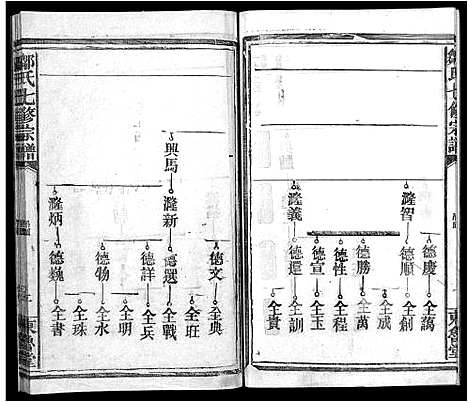 鄒氏七修宗譜
東魯堂
隆智
隆義
德慶
德順
德勝
德性
德宣
德選
全萬
全創
全成
全萬
全程
全玉
全訓
全貴
興馬
隆新
隆炳
德文
德選
德詳
德物
德巍
全典
全旺
全戰
全兵
全明
全水
全珠
全書
鄒氏七修宗譜
東魯堂